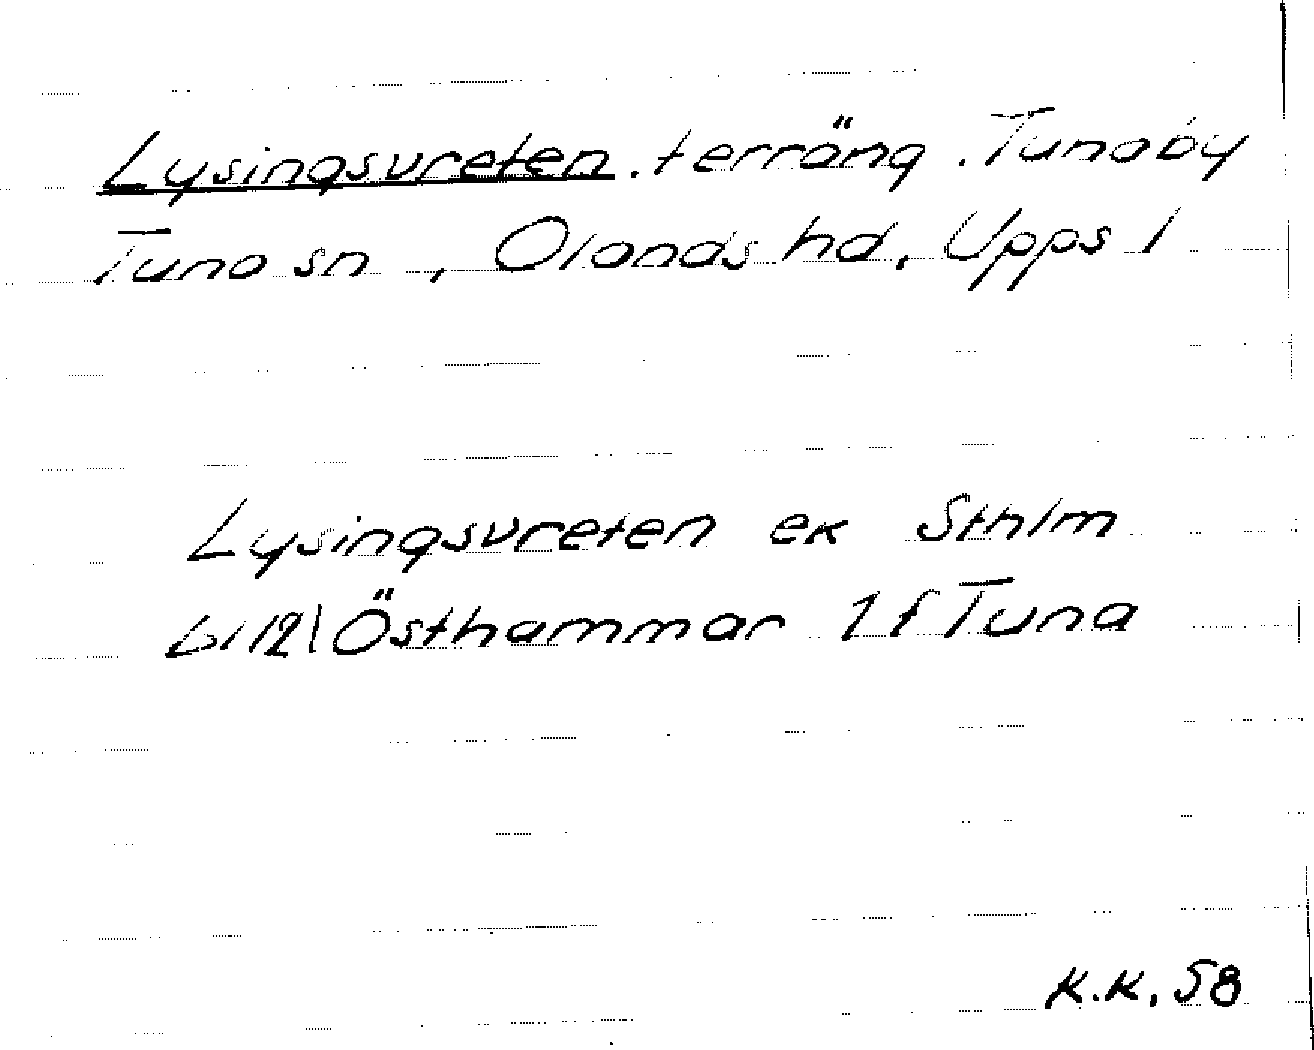 Lysingsvreten. terräng. Tunaby
Tuna sn, Olands hd, Upps l
Lysingsvreten ek Sthlm
bl 121 Östhammar 1 f Tuna
K.K. 58